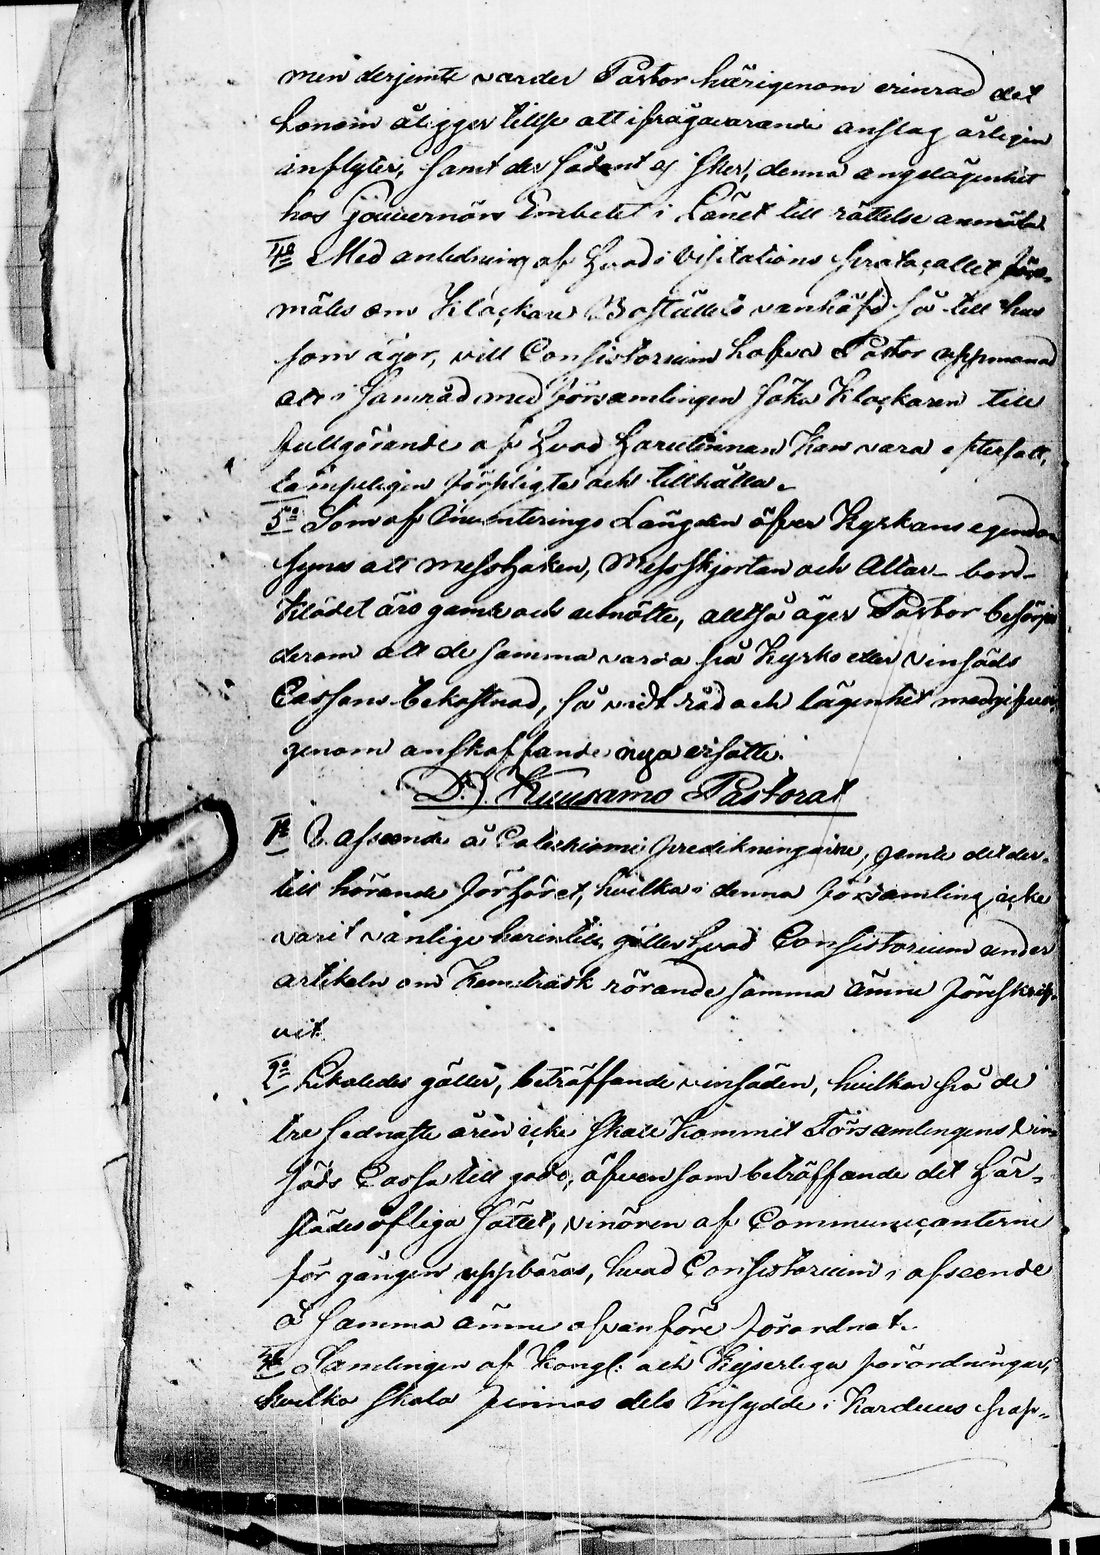 men derjemte warder Pastor härigenom erinrad det
honom åligger tillse att ifrågavarande anslag årligen
inflyter, samt der sådant ej sker, denna angelägenhet
hos Gouvernörs Embetet i Länet till rättelse anmäla
4o Med anledning af hvad i Visitations Protocollet för-
mäles om Klockare Boställets vanhäfd så till hus
som ägor, vill Consistorium hafva Pastor uppmanad
att i samråd med församlingen söka Klockaren till
fullgörande af hvad harutinnan kan vara eftersatt,
lämpeligen förpligta och tillhålla.
5o Som af Inventerings Längden öfver Kyrkans egendom
synes att Messhaken, Messskjortan och Altar-bord-
klädet äro gamla och utnötte, alltså äger Pastor besörja
derom att de samma varda på Kyrko eller vinsäds
Cassans bekostnad, så vidt råd och lägenhet medgifva,
genom anskaffande nya ersatte.
D.) Kuusamo Pastorat
1o I afseende å Catechismi predikningarne, jemte det der-
till hörande förhöret, hvilka i denna församling icke
varit vanlige harintills, gäller hvad Consistorium under
artikeln om Kemiträsk rörande samma ämne föreskrif-
vit.
2o Likaledes gäller, beträffande vinsäden, hvilken på de
tre sednaste åren icke skall kommit Församlingens Vin-
säds Cassa till godo, äfvensom beträffande det här-
städes öfliga sättet, vinören af Communicanterne
för gången uppbäras, hvad Consistorium i afseende
å samma ämne ofvanföre förordnat.
Samlingen af Kongl: och Kejserliga förordningar,
hvilka skola finnas dels insydde i Karduus pap-